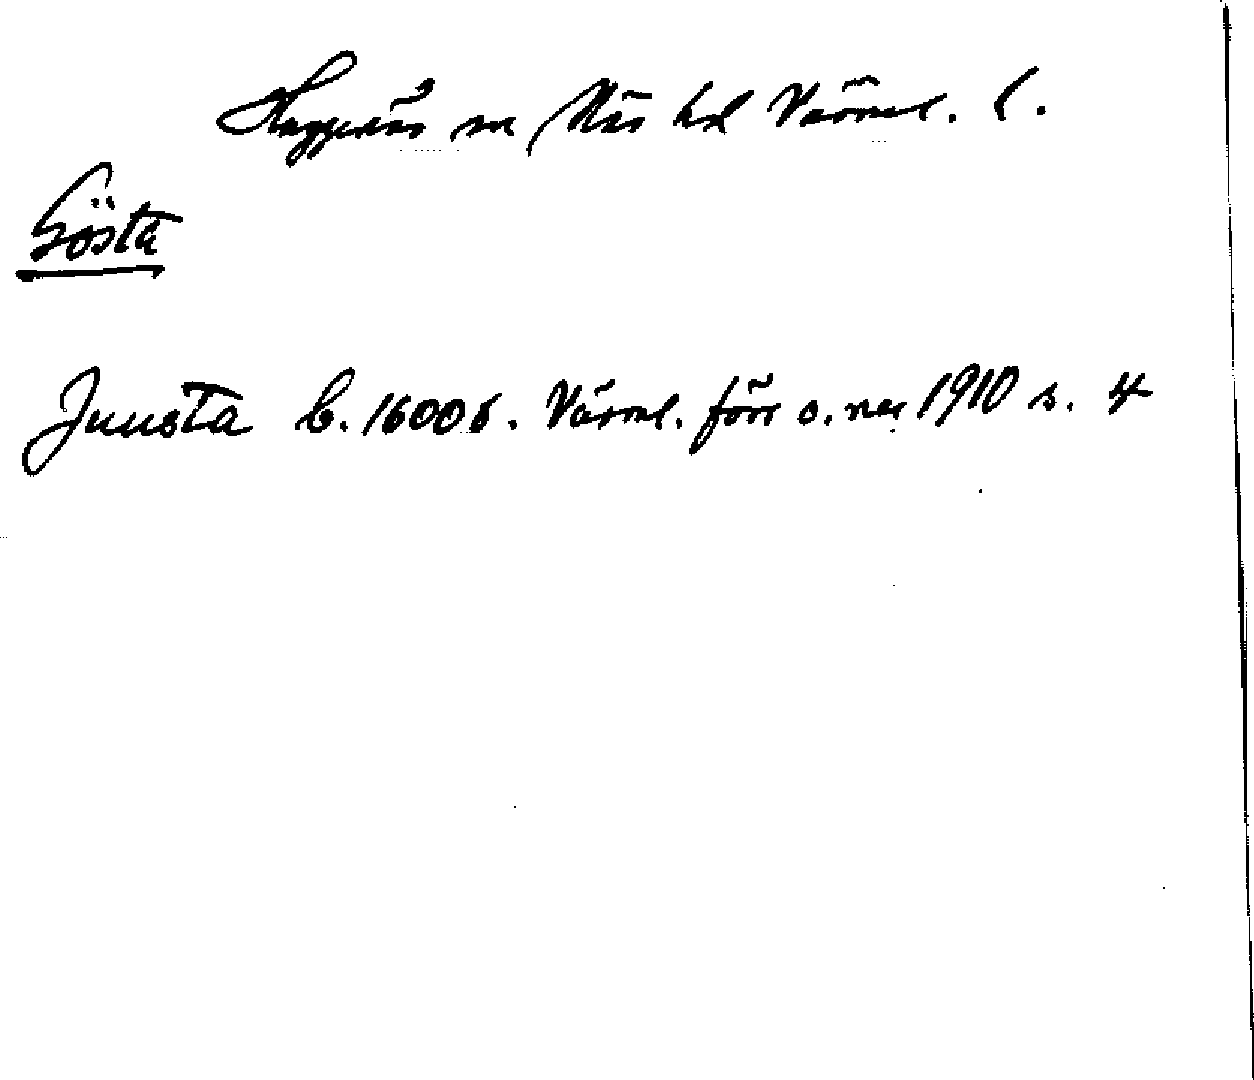 Huggenäs sn Näs hd Värml. l.
Gösta
Juusta b. 1600 t. Värml. förr o. nu 1910 s. 4